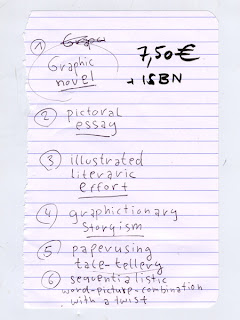 ① Grapu
Graphic 7,50€
novel + ISBN
② pictoral
essay
③ illustrated
literaric
effort
④ graphictionary
storyism
⑤ paperusing
tale-tellery
⑥ sequentialistic
word-picture-combination
with a twist